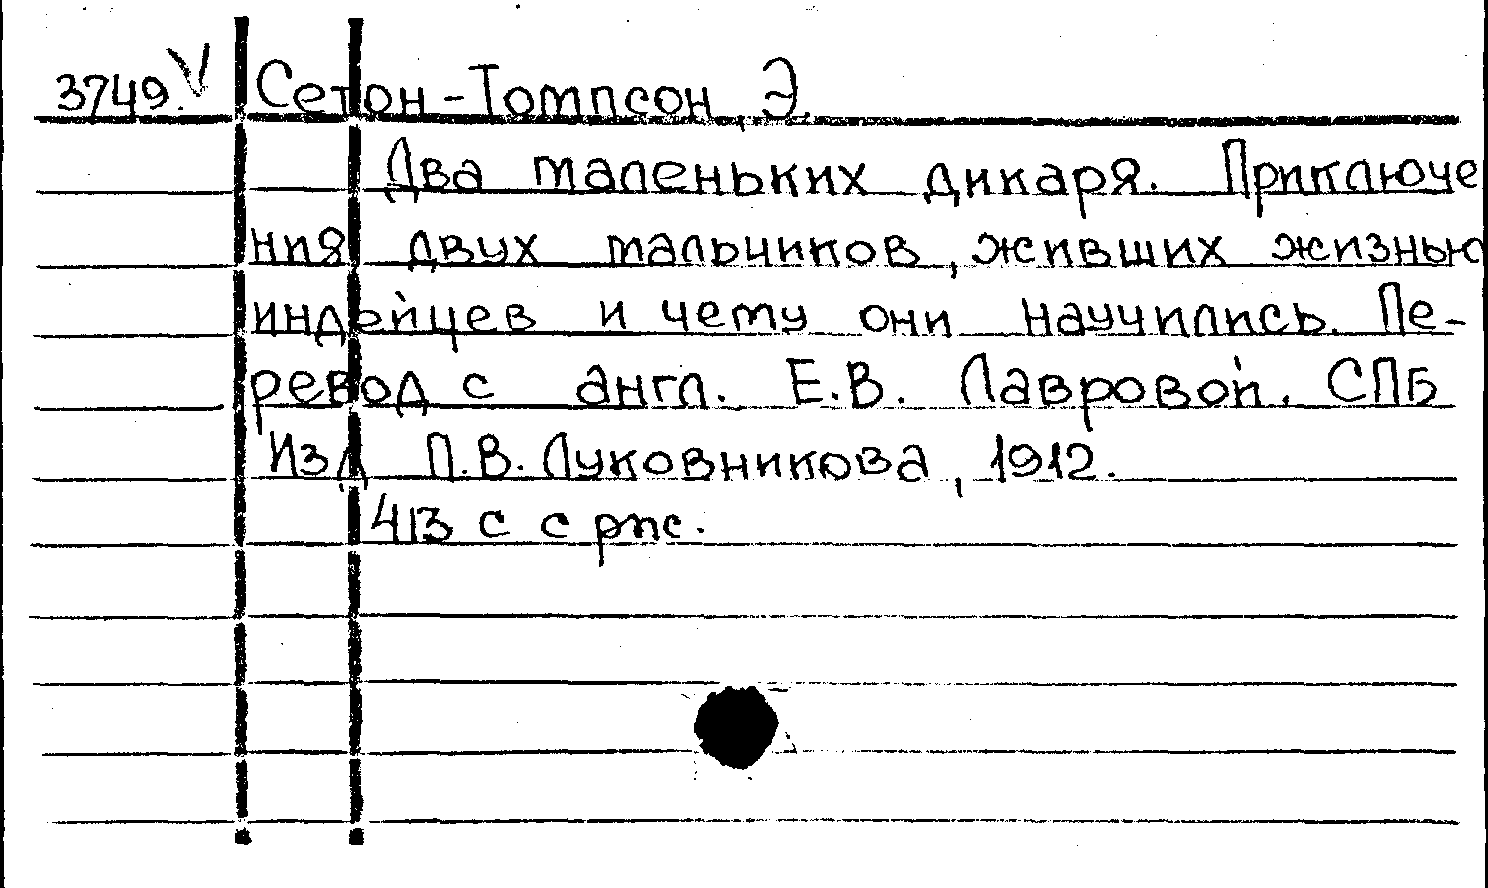 3749. V Сетон-Томпсон, Э.
Два маленьких дикаря. Приключе
ния двух мальчиков, живших жизнью
индейцев и чему они научились. Пе-
ревод с англ. Е.В. Лавровой. СПБ
Изд П.В. Луковникова, 1912.
413 с с рис.